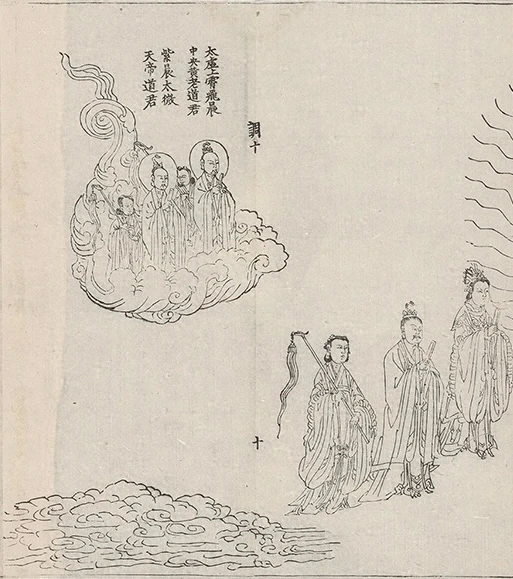 調十
十
太虛上霄飛晨
中央黃老道君
紫晨太微
天帝道君